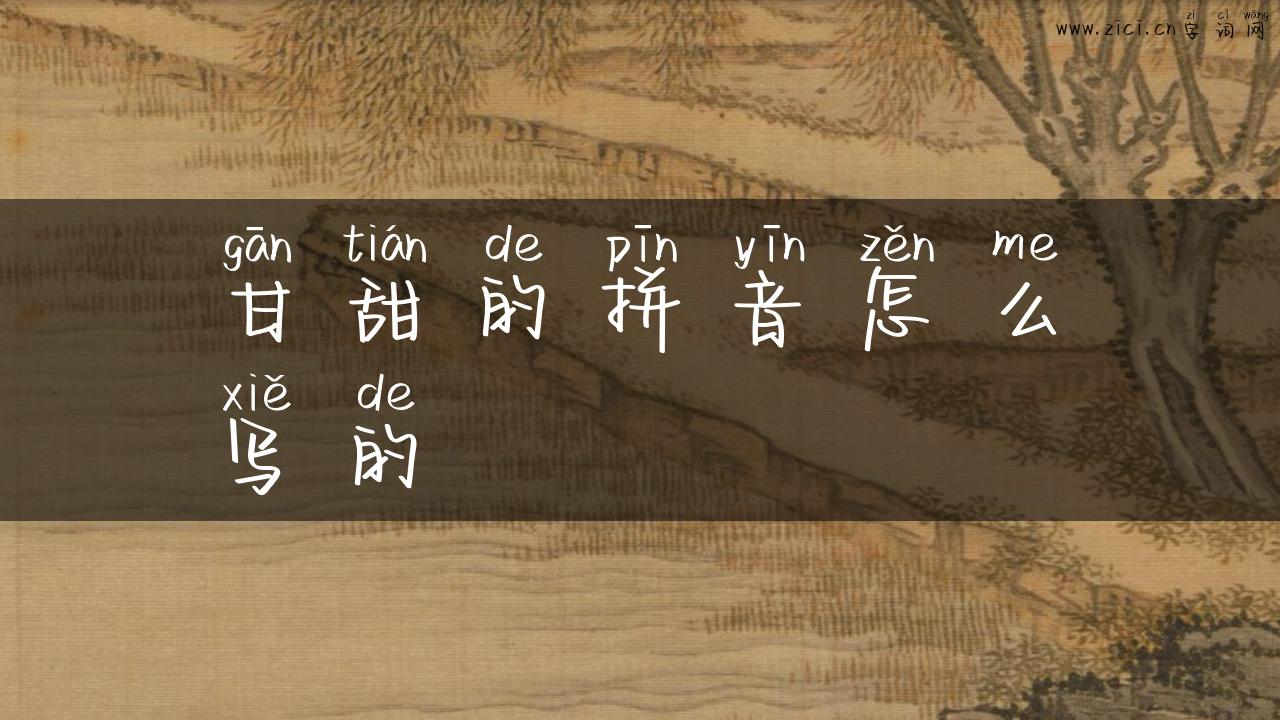 zì cí wǎng
www.zici.cn 字 词 网
gān tián de pīn yīn zěn me
甘 甜 的 拼 音 怎 么
xiě de
写 的